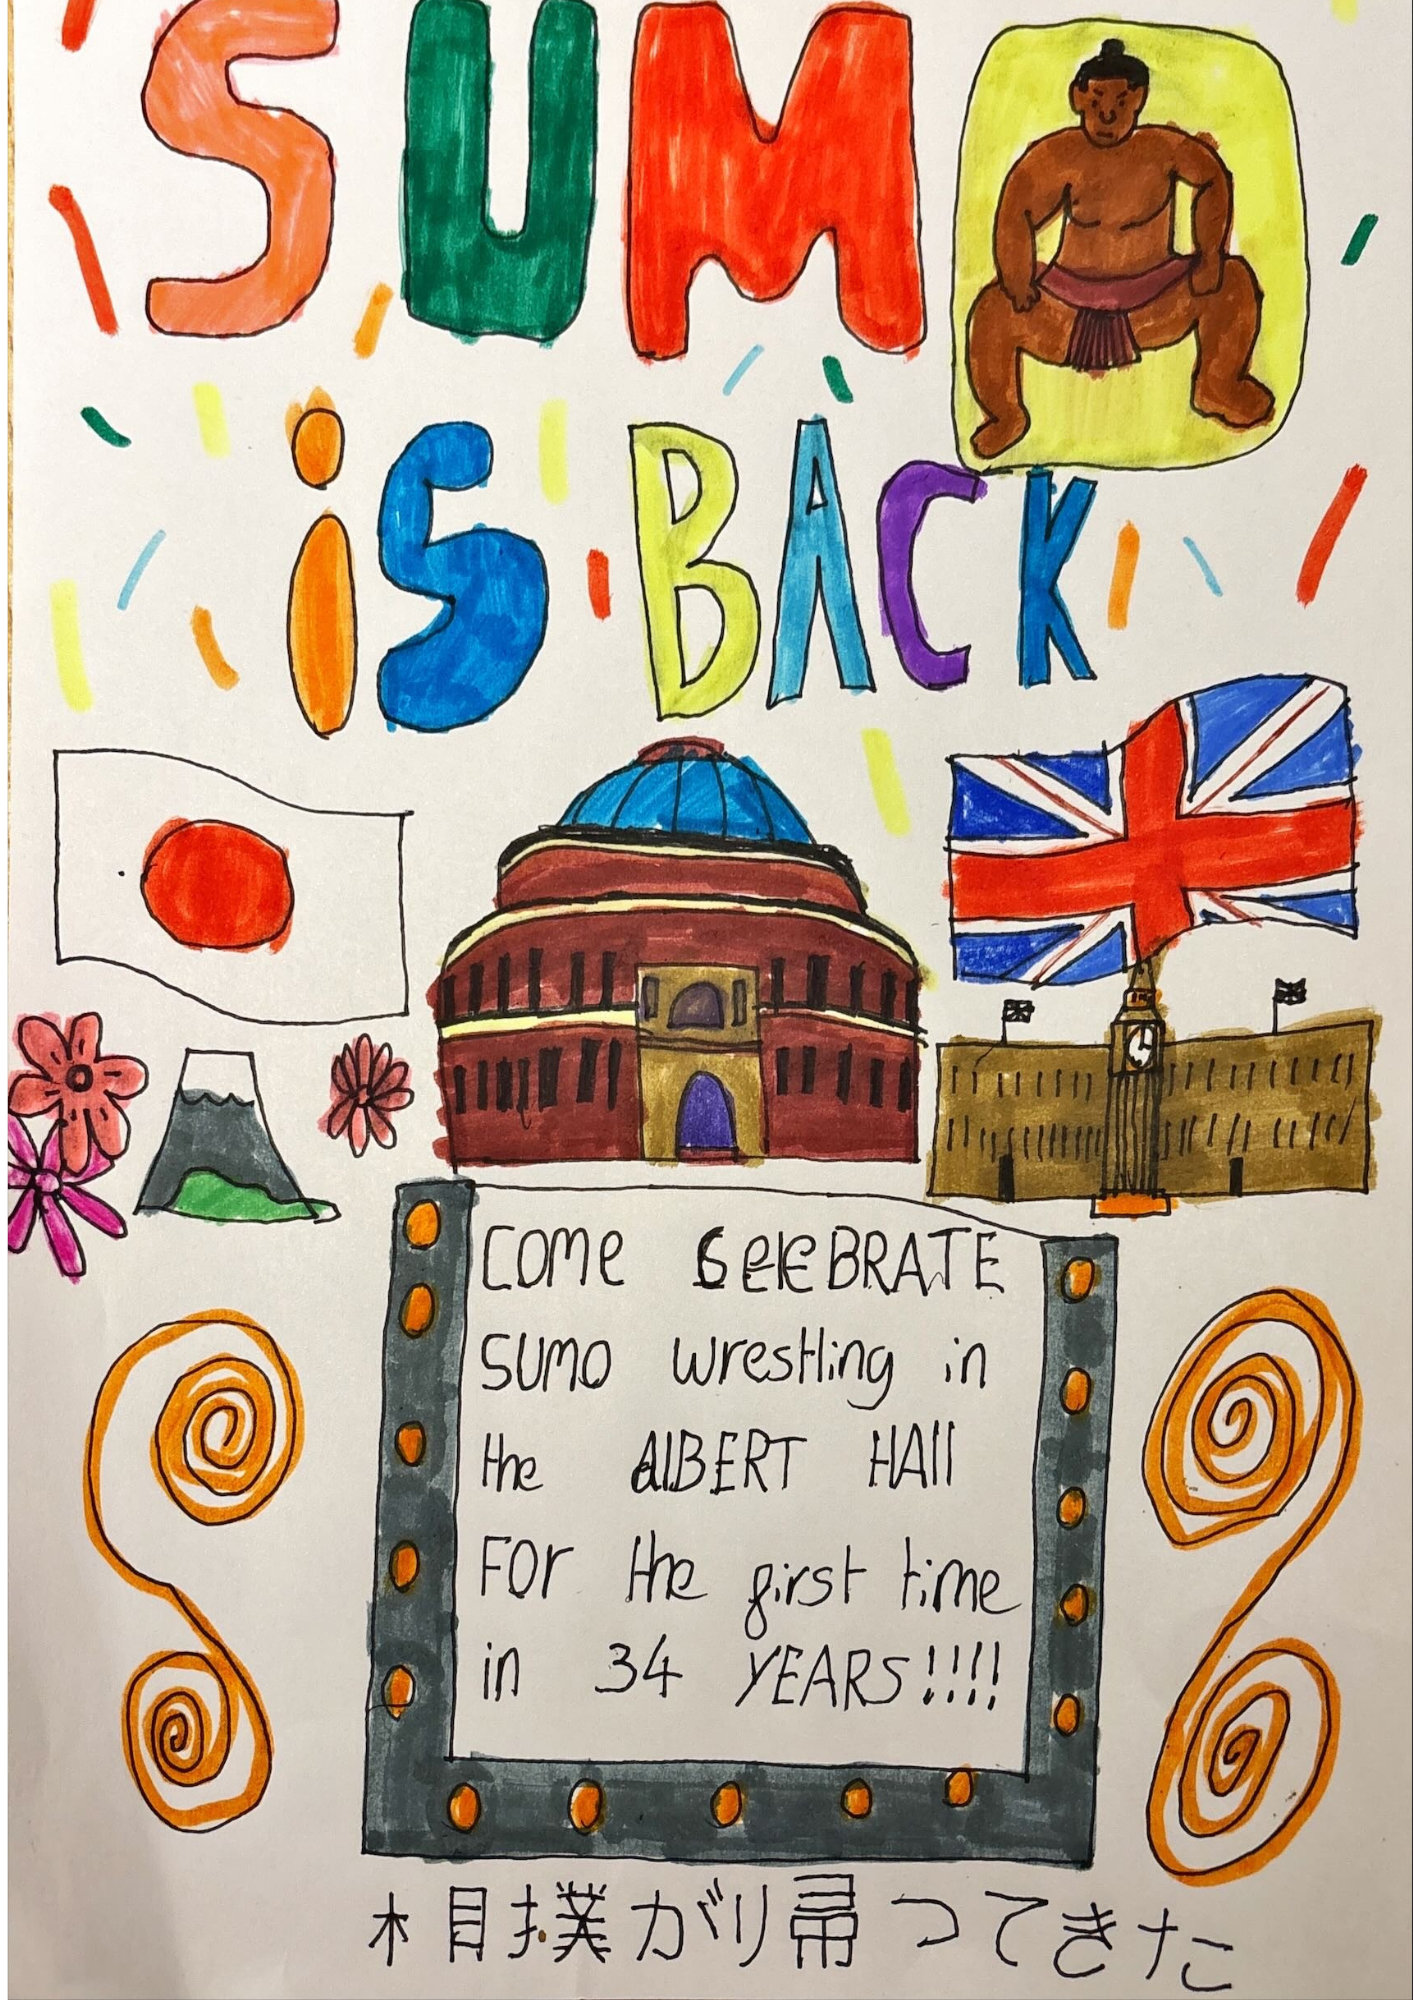 SUMO
iS BACK
COMe CeleBRATE
SUMO wrestling in
the AlBERT HAll
FOr the first time
in 34 YEARS!!!!
相撲が帰つてきた